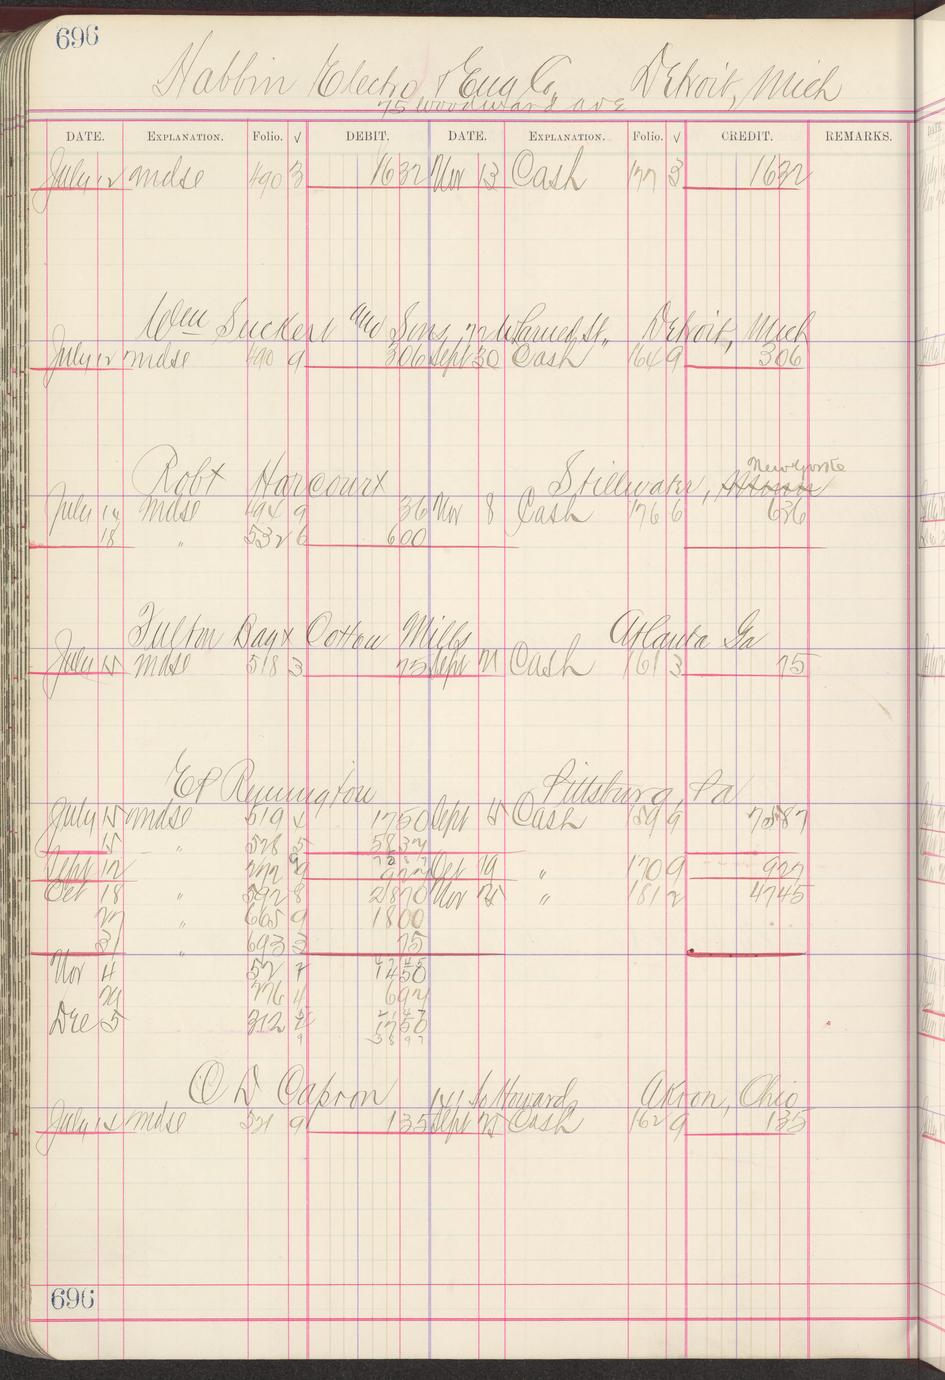 696
Habbin Electro & Eng Co, Detroit, Mich
75 Woodward ave
DATE. EXPLANATION. Folio. √ DEBIT. DATE. EXPLANATION. Folio. √ CREDIT. REMARKS.
July 12 mdse 490 3 1632 Nov 13 Cash 177 3 1632
Wm Suckert and Sons, Detroit, Mich
July 12 mdse 490 9 306 Sept 30 Cash 164 9 306
New York
Robt Harcourt Stillwater,
July 14 mdse 494 9 36 Nov 8 Cash 176 6 636
18 " 532 6 600
Fulton Bag & Cotton Mills Atlanta Ga
July 15 mdse 518 3 75 Sept 21 Cash 161 3 75
Pittsburg, Pa
July 15 mdse 519 4 1750 Sept 15 Cash 159 9 7587
15 " 528 5 5837
7587
Sept 12 " 272 9 927 Oct 19 " 170 9 927
Oct 18 " 592 8 2870 Nov 25 " 181 2 4745
27 " 665 9 1800
31 " 693 3 75
4745
Nov 4 52 7 1450
29 276 4 697
2147
Dec 5 312 4 1750
9 3897
O D Capron 141 So Howard Akron, Ohio
July 15 mdse 521 9 135 Sept 25 Cash 162 9 135
696